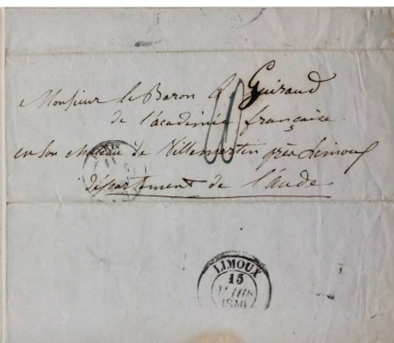 Monsieur le Baron Guiraud
de l'académie française
en son château de Villemartin près Limoux
département de l'aude
LIMOUX
15